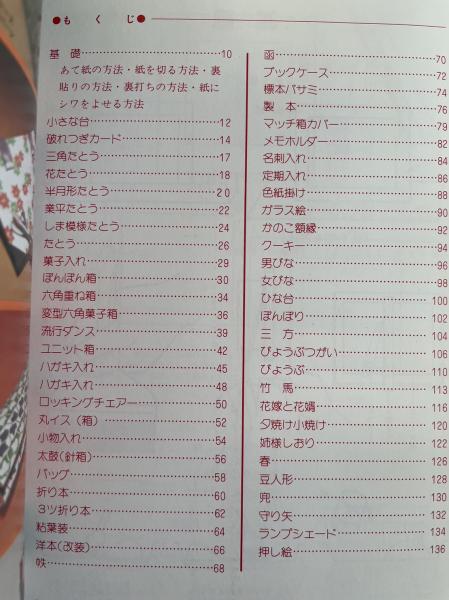 ●もくじ●
基礎……10
あて紙の方法・紙を切る方法・裏
貼りの方法・裏打ちの方法・紙に
シワをよせる方法
小さな台……12
破れつぎカード……14
三角たとう……17
花たとう……18
半月形たとう……20
業平たとう……22
しま模様たとう……24
たとう……26
菓子入れ……29
ぽんぽん箱……30
六角重ね箱……34
変型六角菓子箱……36
流行ダンス……39
ユニット箱……42
ハガキ入れ……45
ハガキ入れ……48
ロッキングチェアー……50
丸イス（箱）……52
小物入れ……54
太鼓（針箱）……56
バッグ……58
折り本……60
３ツ折り本……62
粘葉装……64
洋本（改装）……66
帙……68
函……70
ブックケース……72
標本バサミ……74
製本……76
マッチ箱カバー……79
メモホルダー……82
名刺入れ……84
定期入れ……86
色紙掛け……88
ガラス絵……90
かのこ額縁……92
クーキー……94
男びな……96
女びな……98
ひな台……100
ぼんぼり……102
三方……104
びょうぶつがい……106
びょうぶ……110
竹馬……113
花嫁と花婿……116
夕焼け小焼け……120
姉様しおり……122
春……126
豆人形……128
兜……130
守り矢……132
ランプシェード……134
押し絵……136